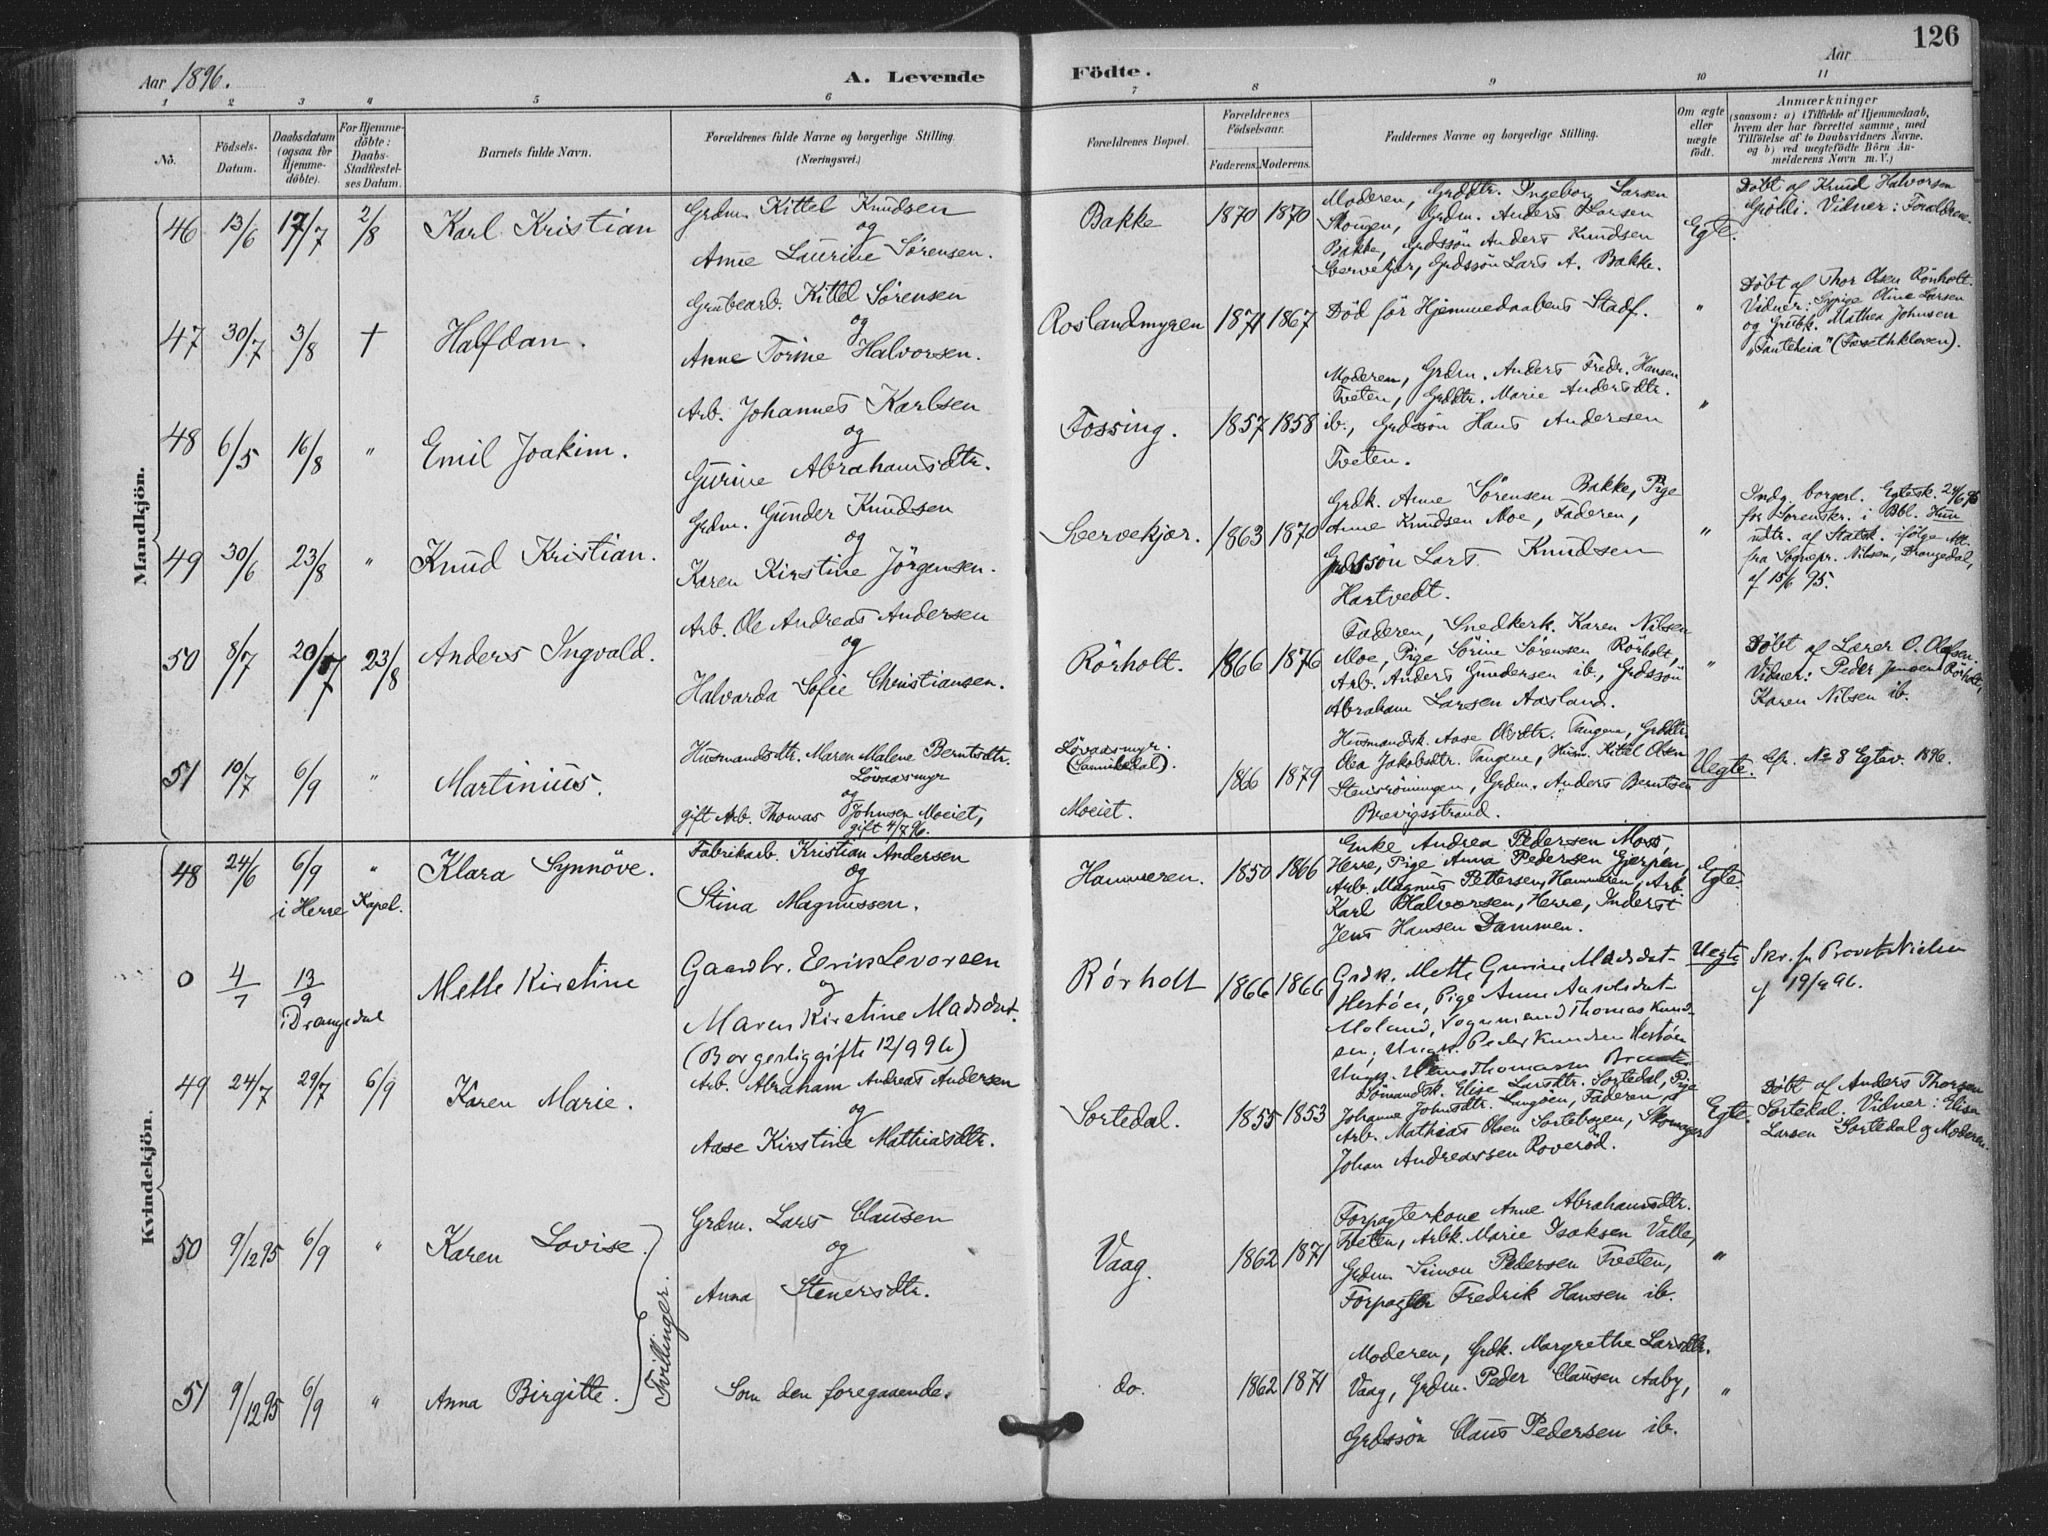 126
Aar 1896.
A. Levende Födte.
Aar
1 2 3 4 5 6 7 8 9 10 11
No.
Födsels-Datum.
Daabsdatum (ogsaa for Hjemme-döbte).
For Hjemme-döbte: Daabs-Stadfæstel-ses Datum.
Barnets fulde Navn.
Forældrenes fulde Navne og borgerlige Stilling.
(Næringsvei.)
Forældrenes Bopæl.
Forældrenes Födselsaar.
Faderens. Moderens.
Faddernes Navne og borgerlige Stilling.
Om ægte eller uægte födt.
Anmærkninger
(saasom: a) i Tilfælde af Hjemmedaab,
hvem der har forrettet samme, med
Tilföielse af to Daabsvidners Navne.
og b) ved uægtefödte Börn An-
melderens Navn m. V.)
Mandkjön.
46 13/6 17/7 2/8 Karl Kristian
Grdm. Kittel Knudsen
og
Anne Laurine Sørensen.
Bakke 1870 1870
Moderen, Grddtr. Ingeborg Larsen
Skougen, Grdm. Anders Larsen
Bakke, Grdssön Anders Knudsen
Svervekjær, Grdssön Lars A. Bakke.
Egte.
Döbt af Knud Halvorsen
Vidner: Forældrene.
47 30/7 3/8 † Halfdan.
Grubearb. Kittel Sørensen
og
Anne Torine Halvorsen.
Roslandmyren 1871 1867
Död för Hjemmedaabens Stadf.
"
Döbt af Thor Olsen Rönholt.
Vidner: Sypige Oline Larsen
og Grubk. Mathea Johnsen
"Tanteheia" (Fosethkleven).
48 6/5 16/8 " Emil Joakim.
Arb. Johannes Karlsen
og
Gurine Abrahamsdtr.
Fossing. 1857 1858
Moderen, Grdm. Anders Fredr. Hansen
Tveten, Grddtr. Marie Andersdtr.
ib., Grdssön Hans Andersen
Tveten.
"
49 30/6 23/8 " Knud Kristian.
Grdm. Gunder Knudsen
og
Karen Kirstine Jörgensen.
Sververkjær. 1863 1870
Grdk. Anne Sørensen Bakke, Pige
Anne Knudsen Moe, Faderen,
Grdssön Lars Knudsen
Hartvedt.
"
Indg. borgerl. Egtesk. 24/6 95
for Sorenskr. i Bbl. Hun
udtr. af Statsk. ifölge Att.
fra Sognepr. Nilsen, Drangedal,
af 15/6 95.
50 8/7 20/7 23/8 Anders Ingvald.
Arb. Ole Andreas Andersen
og
Halvarda Sofie Christiansen.
Rörholt. 1866 1876
Faderen, Snedkerk. Karen Nilsen
Moe, Pige Sörine Sørensen Rörholt,
Arb. Anders Gundersen ib., Grdssön
Abraham Larsen Aasland.
"
Döbt af Lærer O. Olefsen.
Vidner: Peder Jensen Rörholt,
Karen Nilsen ib.
51 10/7 6/9 " Martinius.
Husmandsdtr. Maren Malene Berntsdtr.
Lövaasmyr
og
gift Arb. Thomas Johnsen Moeiet,
gift 4/7 96.
Lövaasmyr.
(Sannikedal).
Moeiet.
1866 1879
Husmandsk. Aase Olsdtr. Tangene, Grddtr.
Olea Jakobsdtr. Tangene, Husm. Kittel Olsen
Stensröningen, Grdm. Anders Berntsen
Brevigsstrand.
Uegte.
Cfr. No 8 Egtev. 1896.
Kvindekjön.
48 24/6 6/9 " Klara Synnöve.
i Herre Kapel.
Fabrikarb. Kristian Andersen
og
Stina Magnussen.
Hammeren. 1850 1866
Enke Andrea Pedersen Moss,
Herre, Pige Anna Pedersen Gjerpen,
Arb. Magnus Pettersen, Hammeren, Arb.
Karl Halvorsen, Herre, Inderst
Jens Hansen Dammen.
Egte.
0 4/7 13/9 Mette Kirstine
i Drangedal
Gaardbr. Eerik Levorsen
og
Maren Kirstine Madsdat.
(Borgerlig gifte 12/9 96)
Rørholt 1866 1866
Grdk. Mette Gurine Madsdat-
Hestöen, Pige Anne Aslotsdat-
Moland, Sognemand Thomas Knud-
sen, Ungk. Peder Knudsen Hestöen
Ungk. Thomassen
Uegte
Skr. fr Provst Nielsen
af 19/9 96.
49 24/7 29/7 6/9 Karen Marie.
Arb. Abraham Andreas Andersen
og
Aase Kirstine Mathiasdtr.
Sortedal. 1855 1853
Sömandsk. Elise Larsdtr. Sortedal, Pige
Johanne Johnsdtr. Langöen, Faderen,
Arb. Mathias Olsen Sortebogen, Skomager
Johan Andreassen Roveröd.
Egte.
Döbt af Anders Thorsen
Sortedal. Vidner: Elise
Larsen Sortedal og Moderen.
50 9/12 95 6/9 " Karen Lovise.
Grdm. Lars Clausen
og
Anna Stenersdtr.
Vaag. 1862 1871
Forpagterkone Anne Abrahamsdtr.
Tveten, Arbk. Marie Isaksen Valle,
Grdm. Simon Pedersen Tveten,
Forpagter Fredrik Hansen ib.
"
Tvillinger.
51 9/12 95 6/9 " Anna Birgitte.
Som den foregaaende.
do. 1862 1871
Moderen, Grdk. Margrethe Larsdtr.
Vaag, Grdm. Peder Clausen Aaby,
Grdssön Claus Pedersen ib.
"